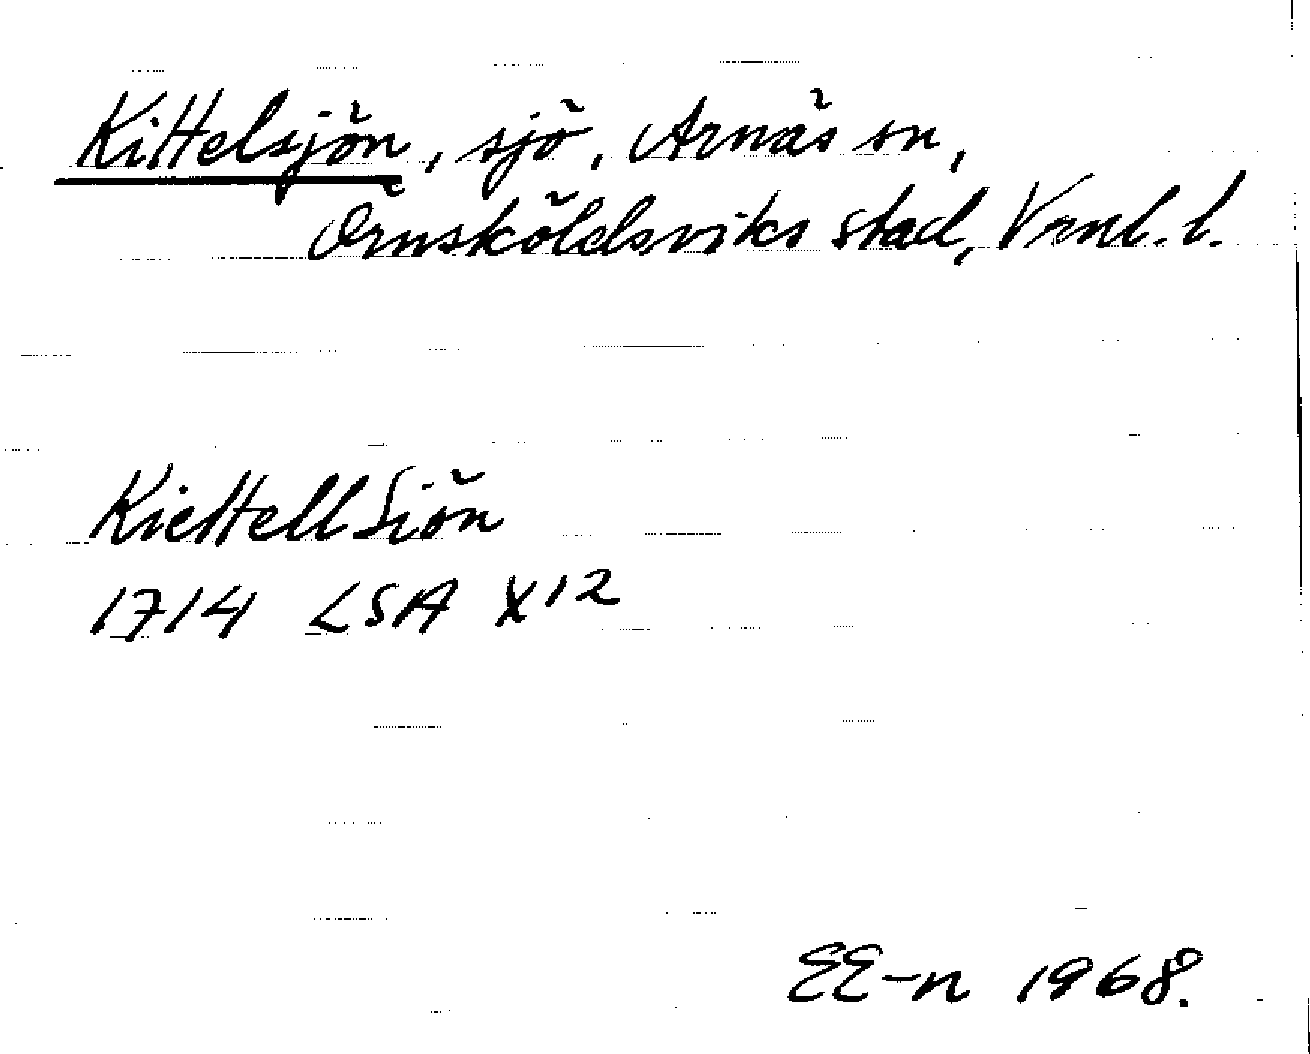 Kittelsjön, sjö, Arnäs sn,
Örnsköldsviks stad, Vrnl. l.
Kiettell Siön
1714 LSA X12
EE-n 1968.